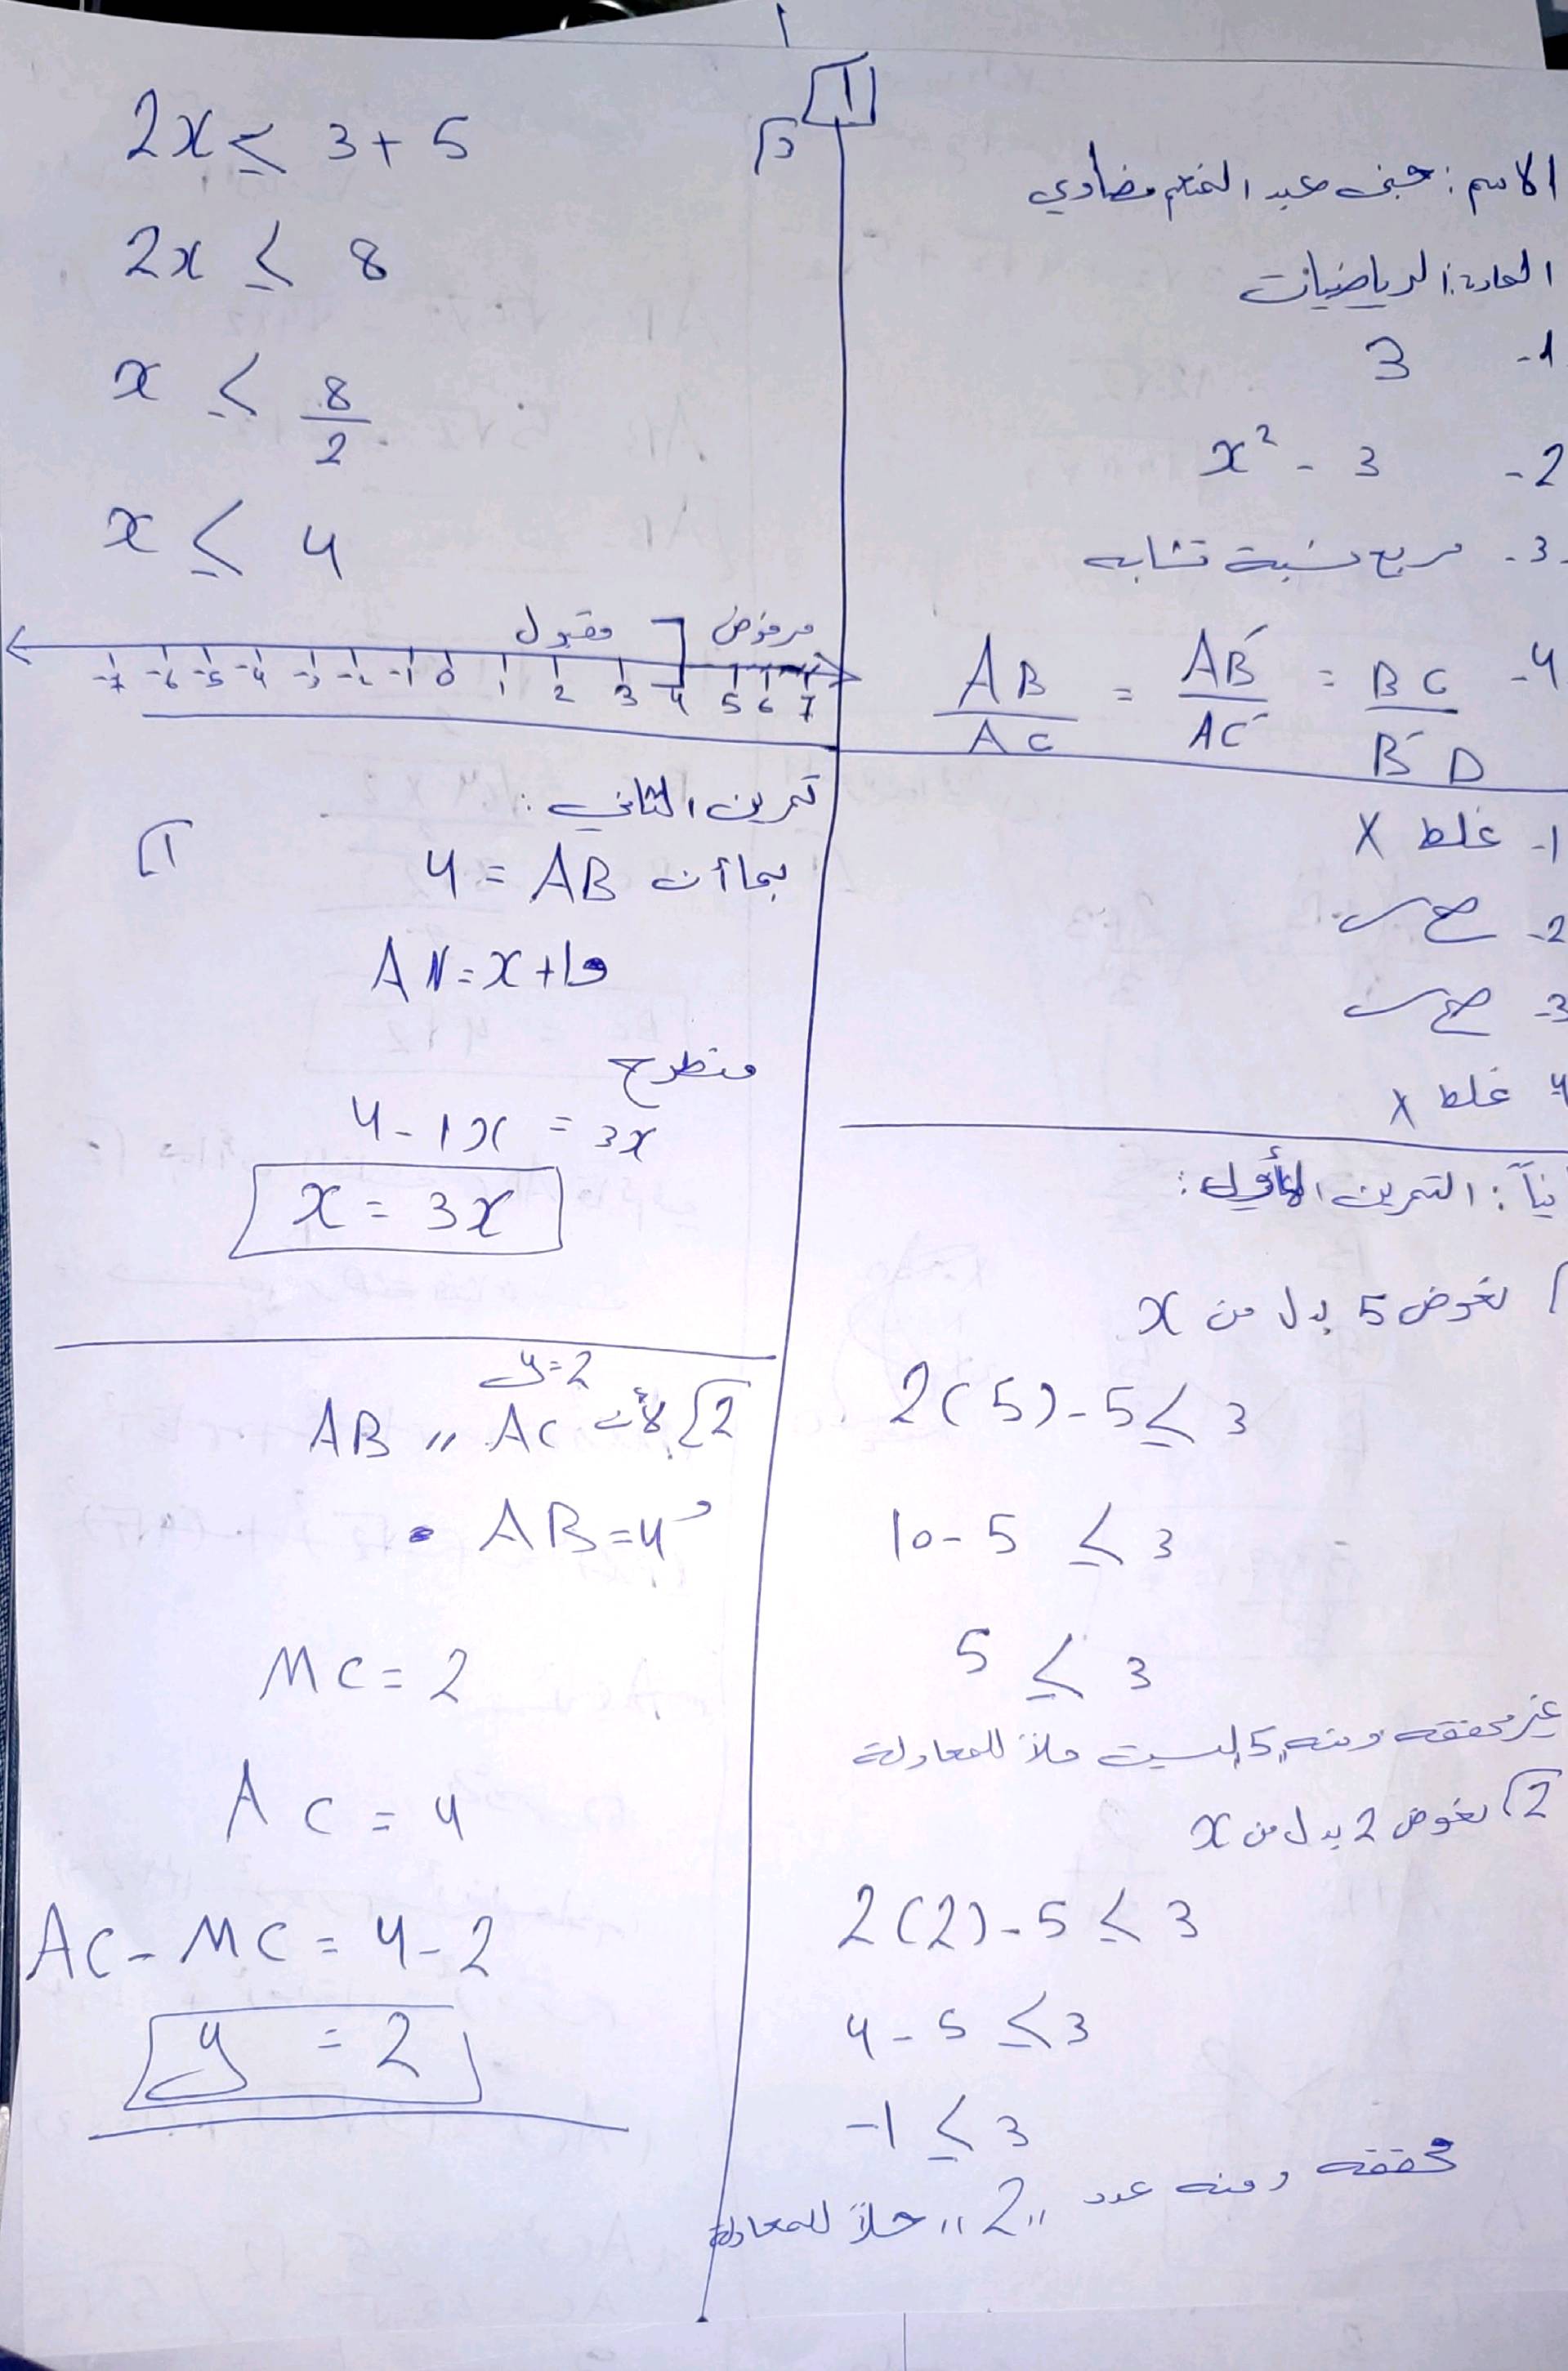 1
الاسم: جنى عبد المنعم مضاوي
المادة: الرياضيات
1- 3
2- x² - 3
3- مربع نسبة تشابه
4- AB/AC = AB´/AC´ = BC/B´D
1- غلط X
2- صح ✓
3- صح ✓
4 غلط X
نياً: التمرين الأول:
نعوض 5 بدل من x
2(5)-5 ≤ 3
10-5 ≤ 3
5 ≤ 3
غير محققه ومنه "5" ليست حلاً للمعادلة
2) نعوض 2 بدل من x
2(2)-5 ≤ 3
4-5 ≤ 3
-1 ≤ 3
محققه ومنه عدد "2" حلاً للمعادلة
3)
2x ≤ 3+5
2x ≤ 8
x ≤ 8/2
x ≤ 4
مقبول ] مرفوض
-7 -6 -5 -4 -3 -2 -1 0 1 2 3 4 5 6 7
تمرين الثاني:
1) بما أن AB = 4
AN=x+1و
منطرح
4-1x = 3x
x = 3x
y=2
2) لأن AB // AC
و AB=4
MC=2
AC=4
AC-MC=4-2
y = 2